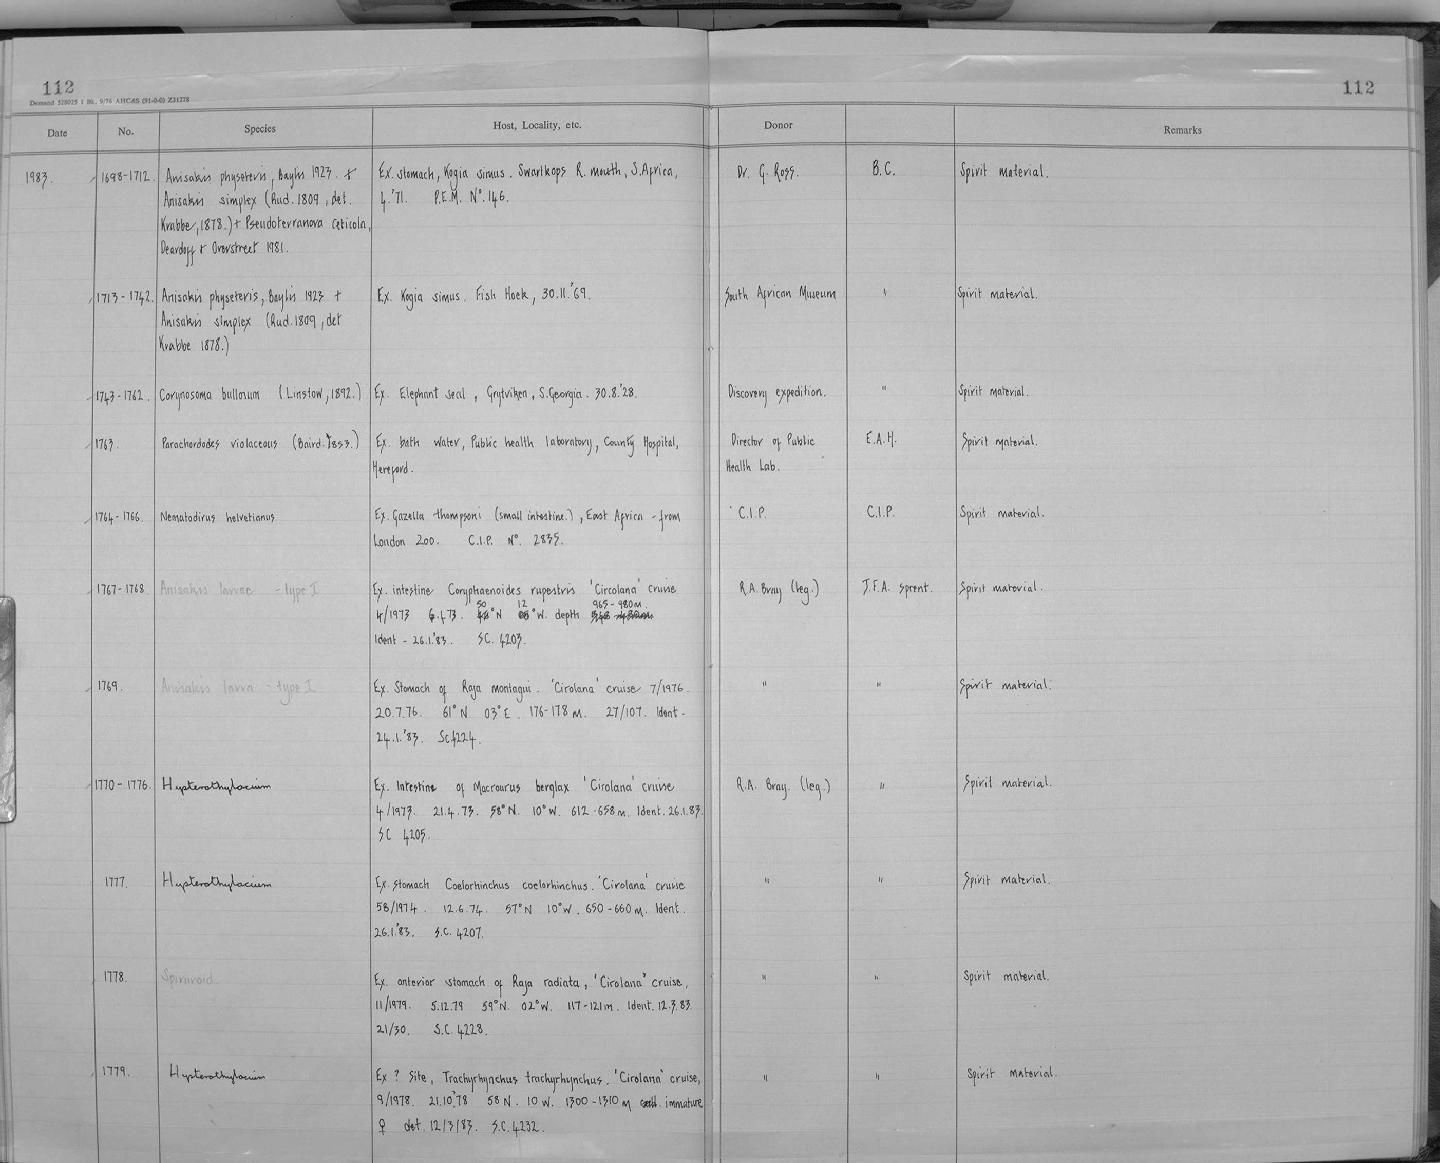 112
112
Demand 528025 1 Bk. 9/76 AHC&S (91-0-0) Z31278
Date No. Species Host, Locality, etc. Donor Remarks
1983. 1698-1712. Anisakis physeteris, Baylis 1923. + Ex. stomach, Kogia simus. Swartkops R. mouth, S.Africa, Dr. G. Ross. B.C. Spirit material.
Anisakis simplex (Rud. 1809, det. 4.'71. P.E.M. No. 146.
Krabbe, 1878.) + Pseudoterranova ceticola,
Deardoff & Overstreet 1981.
1713-1742. Anisakis physeteris, Baylis 1923 + Ex. Kogia simus. Fish Hoek, 30.11.'69. South African Museum " Spirit material.
Anisakis simplex (Rud. 1809, det
Krabbe 1878.)
1743-1762. Corynosoma bullosum (Linstow, 1892.) Ex. Elephant seal, Grytviken, S.Georgia. 30.8.'28. Discovery expedition. " Spirit material.
1763. Parachordodes violaceous (Baird. 1853.) Ex. bath water, Public health laboratory, County Hospital, Director of Public E.A.H. Spirit material.
Hereford. Health Lab.
1764-1766. Nematodirus helvetianus Ex. Gazella thompsoni (small intestine.), East Africa - from C.I.P. C.I.P. Spirit material.
London Zoo. C.I.P. No. 2835.
1767-1768 Anisakis larvae - type I Ex. intestine Coryphaenoides rupestris 'Circolana' cruise R.A. Bray (leg.) J.F.A. Sprent. Spirit material.
50 12 965-980m.
4/1973 6.4.73. °N °W. depth
Ident - 26.1.'83. SC. 4203.
1769. Anisakis larva - type I Ex. Stomach of Raja montagui. 'Cirolana' cruise 7/1976. " " Spirit material.
20.7.76. 61°N 03°E. 176-178 m. 27/107. Ident -
24.1.'83. SC4224.
1770-1776. Hysterothylacium Ex. Intestine of Macrourus berglax 'Cirolana' cruise R.A. Bray. (leg.) " Spirit material.
4/1973. 21.4.73. 58°N. 10°W. 612-658m. Ident. 26.1.83.
SC 4205.
1777. Hysterothylacium Ex. stomach Coelorhinchus coelorhinchus. 'Cirolana' cruise " " Spirit material.
58/1974. 12.6.74. 57°N 10°W. 650-660m. Ident.
26.1.'83. S.C. 4207.
1778. Spiruroid Ex. anterior stomach of Raja radiata, 'Cirolana' cruise, " " Spirit material.
11/1979. 5.12.79 59°N. 02°W. 117-121m. Ident. 12.3.83.
21/30. S.C. 4228.
1779. Hysterothylacium Ex ? Site, Trachyrhynchus trachyrhynchus. 'Cirolana' cruise, " " Spirit material.
9/1978. 21.10.'78 58 N. 10 W. 1300-1310 m immature
♀ det. 12/3/83. S.C. 4232.